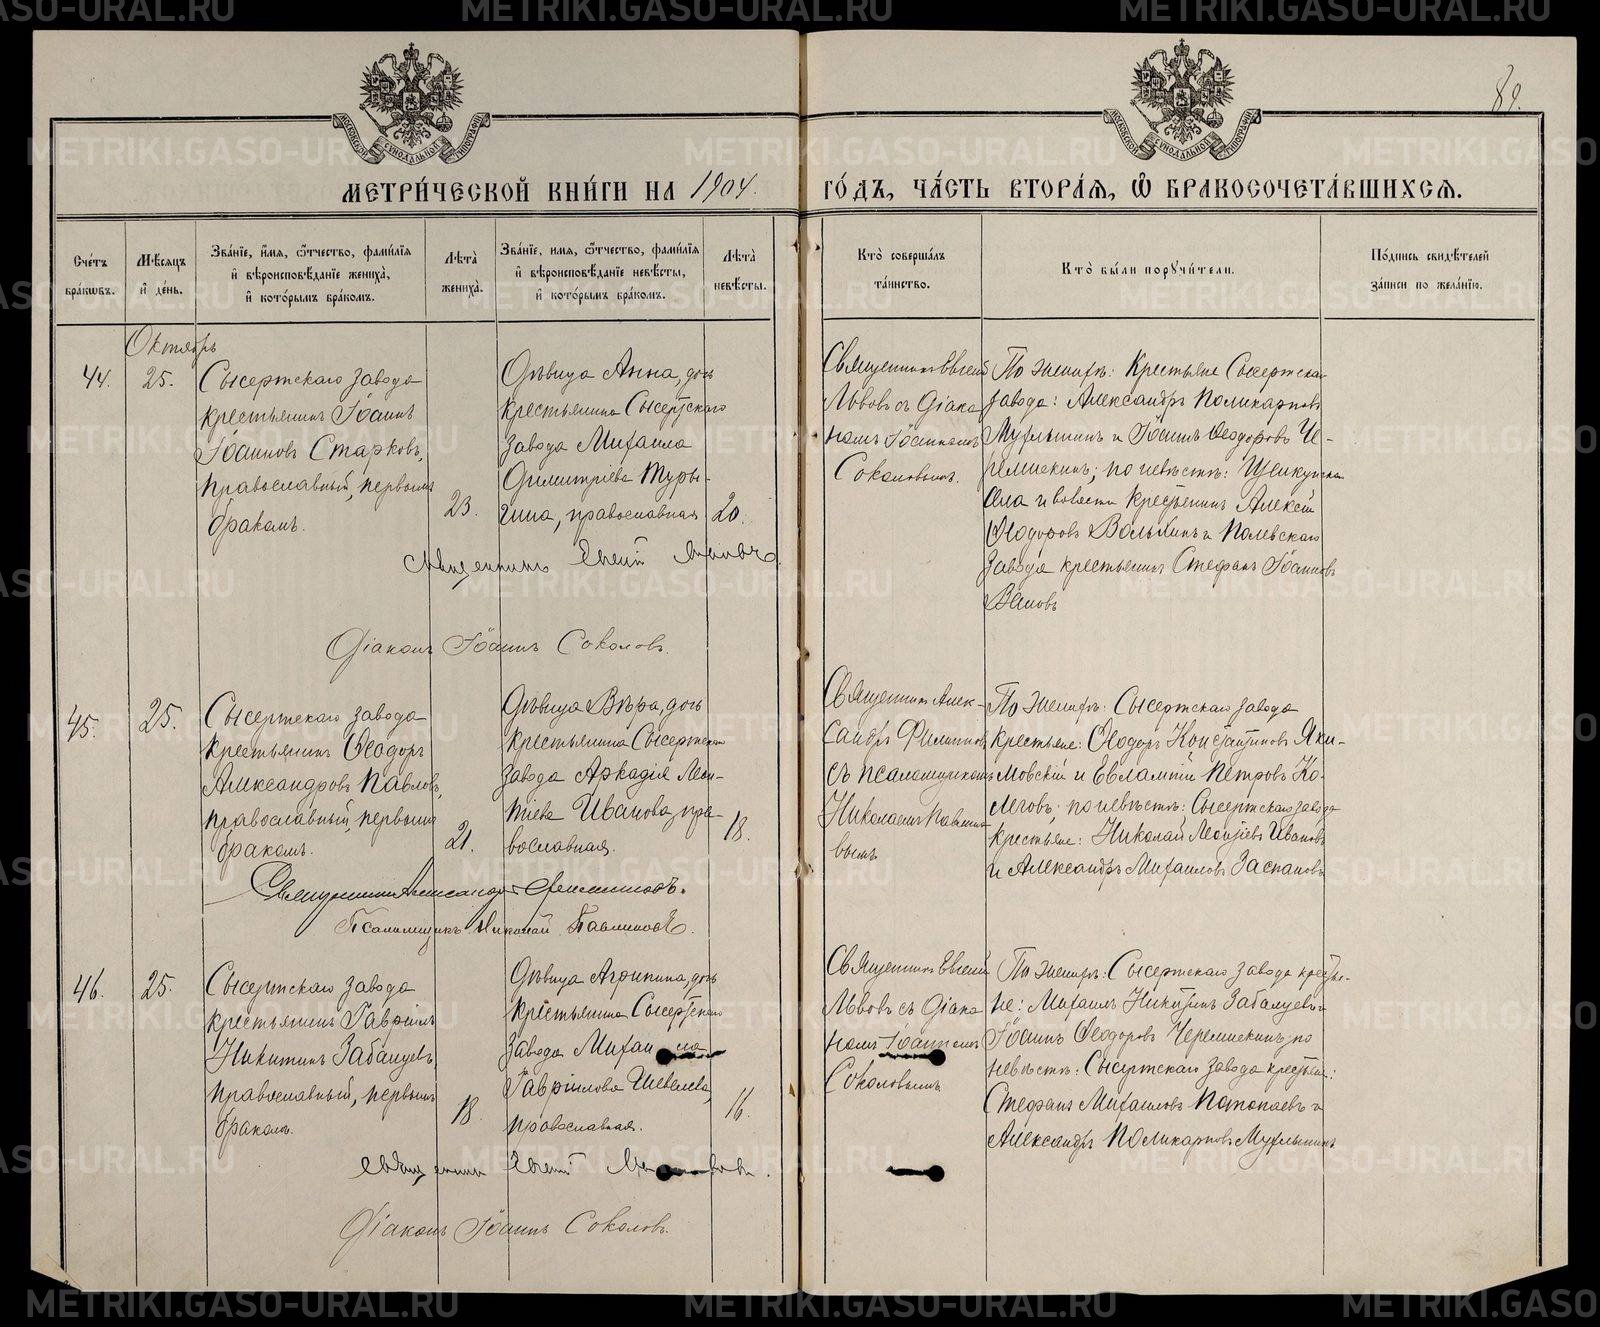 METRIKI.GASO-URAL.RU
МОСКОВСКОЙ СѴНОДАЛЬНОЙ ТИПОГРАФІИ
МОСКОВСКОЙ СѴНОДАЛЬНОЙ ТИПОГРАФІИ
89.
МЕТРИ́ЧЕСКОЙ КНИ́ГИ НА 1904. ГО́ДЪ, ЧА́СТЬ ВТОРА́Ѧ, Ѽ БРАКОСОЧЕТА́ВШИХСѦ.
Сче́тъ бра́кѡвъ.
Мѣ́сѧцъ и҆ де́нь.
Зва́нїе, и҆́мѧ, ѻ҆́тчество, фами́лїѧ и҆ вѣроисповѣ́данїе жениха̀, и҆ кото́рымъ бра́комъ.
Лѣ́та̀ жениха̀.
Зва́нїе, имѧ, ѻ҆́тчество, фами́лїѧ и҆ вѣроисповѣ́данїе невѣ́сты, и҆ кото́рымъ бра́комъ.
Лѣ́та̀ невѣ́сты.
Кто̀ соверша́лъ та́инство.
Кто̀ бы́ли порꙋчи́тели.
По́дпись свидѣ́телей за́писи по жела́нїю.
Октябрь
44.
25.
Сысертскаго завода
крестьянинъ Іоаннъ
Іоанновъ Старковъ,
православный, первымъ
бракомъ.
23.
Дѣвица Анна, дочь
крестьянина Сысертскаго
завода Михаила
Димитріева Туры-
гина, православная
20.
Священникъ Евгеній
Львовъ съ діако
номъ Іоанномъ
Соколовымъ.
По женихѣ: Крестьяне Сысертскаго
завода: Александръ Поликарповъ
и Іоаннъ Ѳеодоровъ Че-
ремискинъ; по невѣстѣ: Щелкунскаго
села и волости крестьянинъ Алексій
Ѳеодоровъ Волыхинъ и Полевскаго
завода крестьянинъ Стефанъ Іоанновъ
Священникъ Евгеній Львовъ
Діаконъ Іоаннъ Соколовъ.
45.
25.
Сысертскаго завода
крестьянинъ Ѳеодоръ
Александровъ Павловъ,
православный, первымъ
бракомъ.
21.
Дѣвица Вѣра, дочь
крестьянина Сысертскаго
завода Аркадія Леон-
тіева Иванова, пра-
вославная.
18.
Священникъ Алек-
сандръ Филипповъ
съ псаломщикомъ
Николаемъ Павлино-
вымъ
По женихѣ: Сысертскаго завода
крестьяне: Ѳеодоръ Константиновъ Яки-
мовскій и Евлампій Петровъ Ко-
леговъ; по невѣстѣ: Сысертскаго завода
крестьяне: Николай Леонтіевъ Ивановъ
и Александръ Михаиловъ Заспановъ
Священникъ Александръ Филипповъ.
Псаломщикъ Николай Павлиновъ.
46.
25.
Сысертскаго завода
крестьянинъ Гавріилъ
Никитинъ Забалуевъ,
православный, первымъ
бракомъ.
18.
Дѣвица Агрипина, дочь
крестьянина Сысертскаго
завода Михаила
Гавріилова Шевелева,
православная.
16.
Священникъ Евгеній
Львовъ съ діако
номъ Іоанномъ
Соколовымъ
По женихѣ: Сысертскаго завода крестья-
не: Михаилъ Никитинъ Забалуевъ и
Іоаннъ Ѳеодоровъ Черемискинъ; по
невѣстѣ: Сысертскаго завода крестьяне:
Стефанъ Михаиловъ Потопаевъ и
Александръ Поликарповъ
Священникъ Евгеній Львовъ.
Діаконъ Іоаннъ Соколовъ.